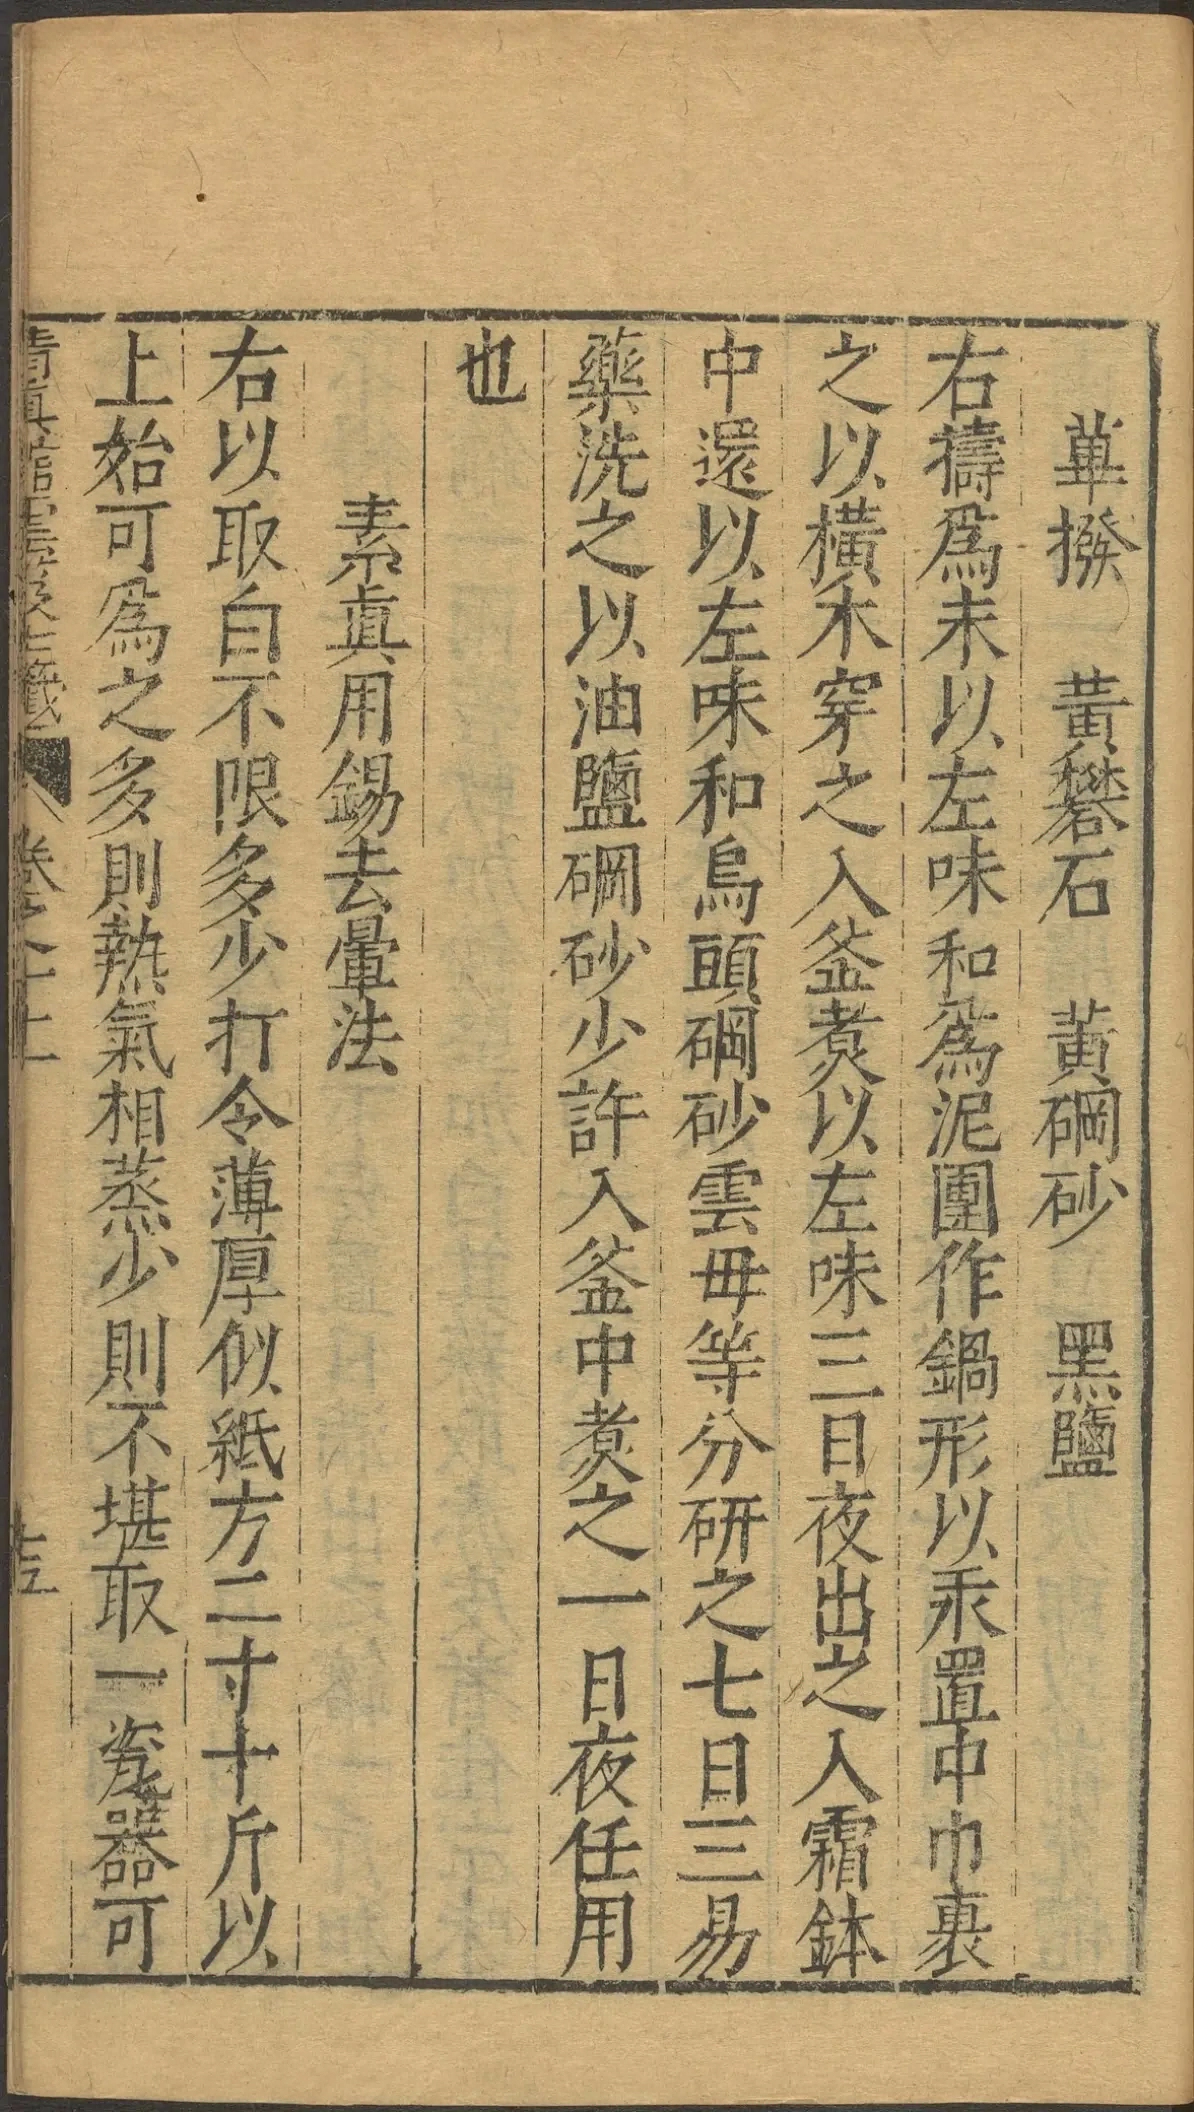 蓽撥　黃礬石　黃硇砂　黑鹽
右擣爲末以左味和爲泥團作鍋形以汞置中巾裹
之以橫木穿之入釜煮以左味三日夜出之入霜鉢
中還以左味和烏頭硇砂雲母等分研之七日三易
藥洗之以油鹽硇砂少許入釜中煮之一日夜任用
也
素眞用錫去暈法
右以取白不限多少打令薄厚似紙方二寸十斤以
上始可爲之多則熱氣相蒸少則不堪取一瓷器可
清真館雲笈七籤　卷之七十一　十五